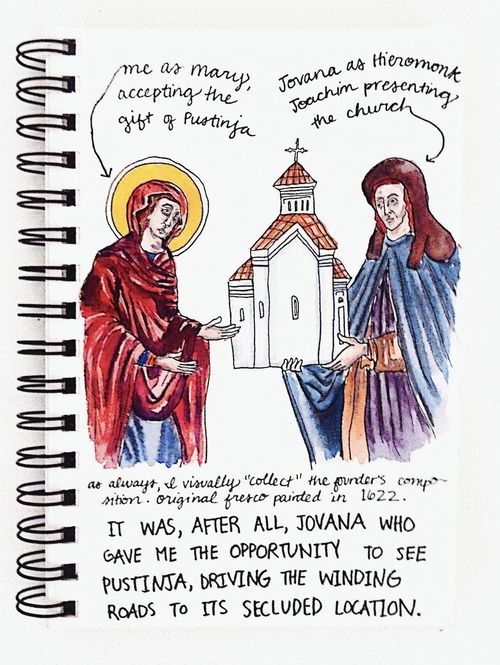 me as mary,
accepting the
gift of Pustinja
Jovana as Hieromonk
Joachim presenting
the church
as always, I visually "collect" the founder's compo-
sition. original fresco painted in 1622.
IT WAS, AFTER ALL, JOVANA WHO
GAVE ME THE OPPORTUNITY TO SEE
PUSTINJA, DRIVING THE WINDING
ROADS TO ITS SECLUDED LOCATION.